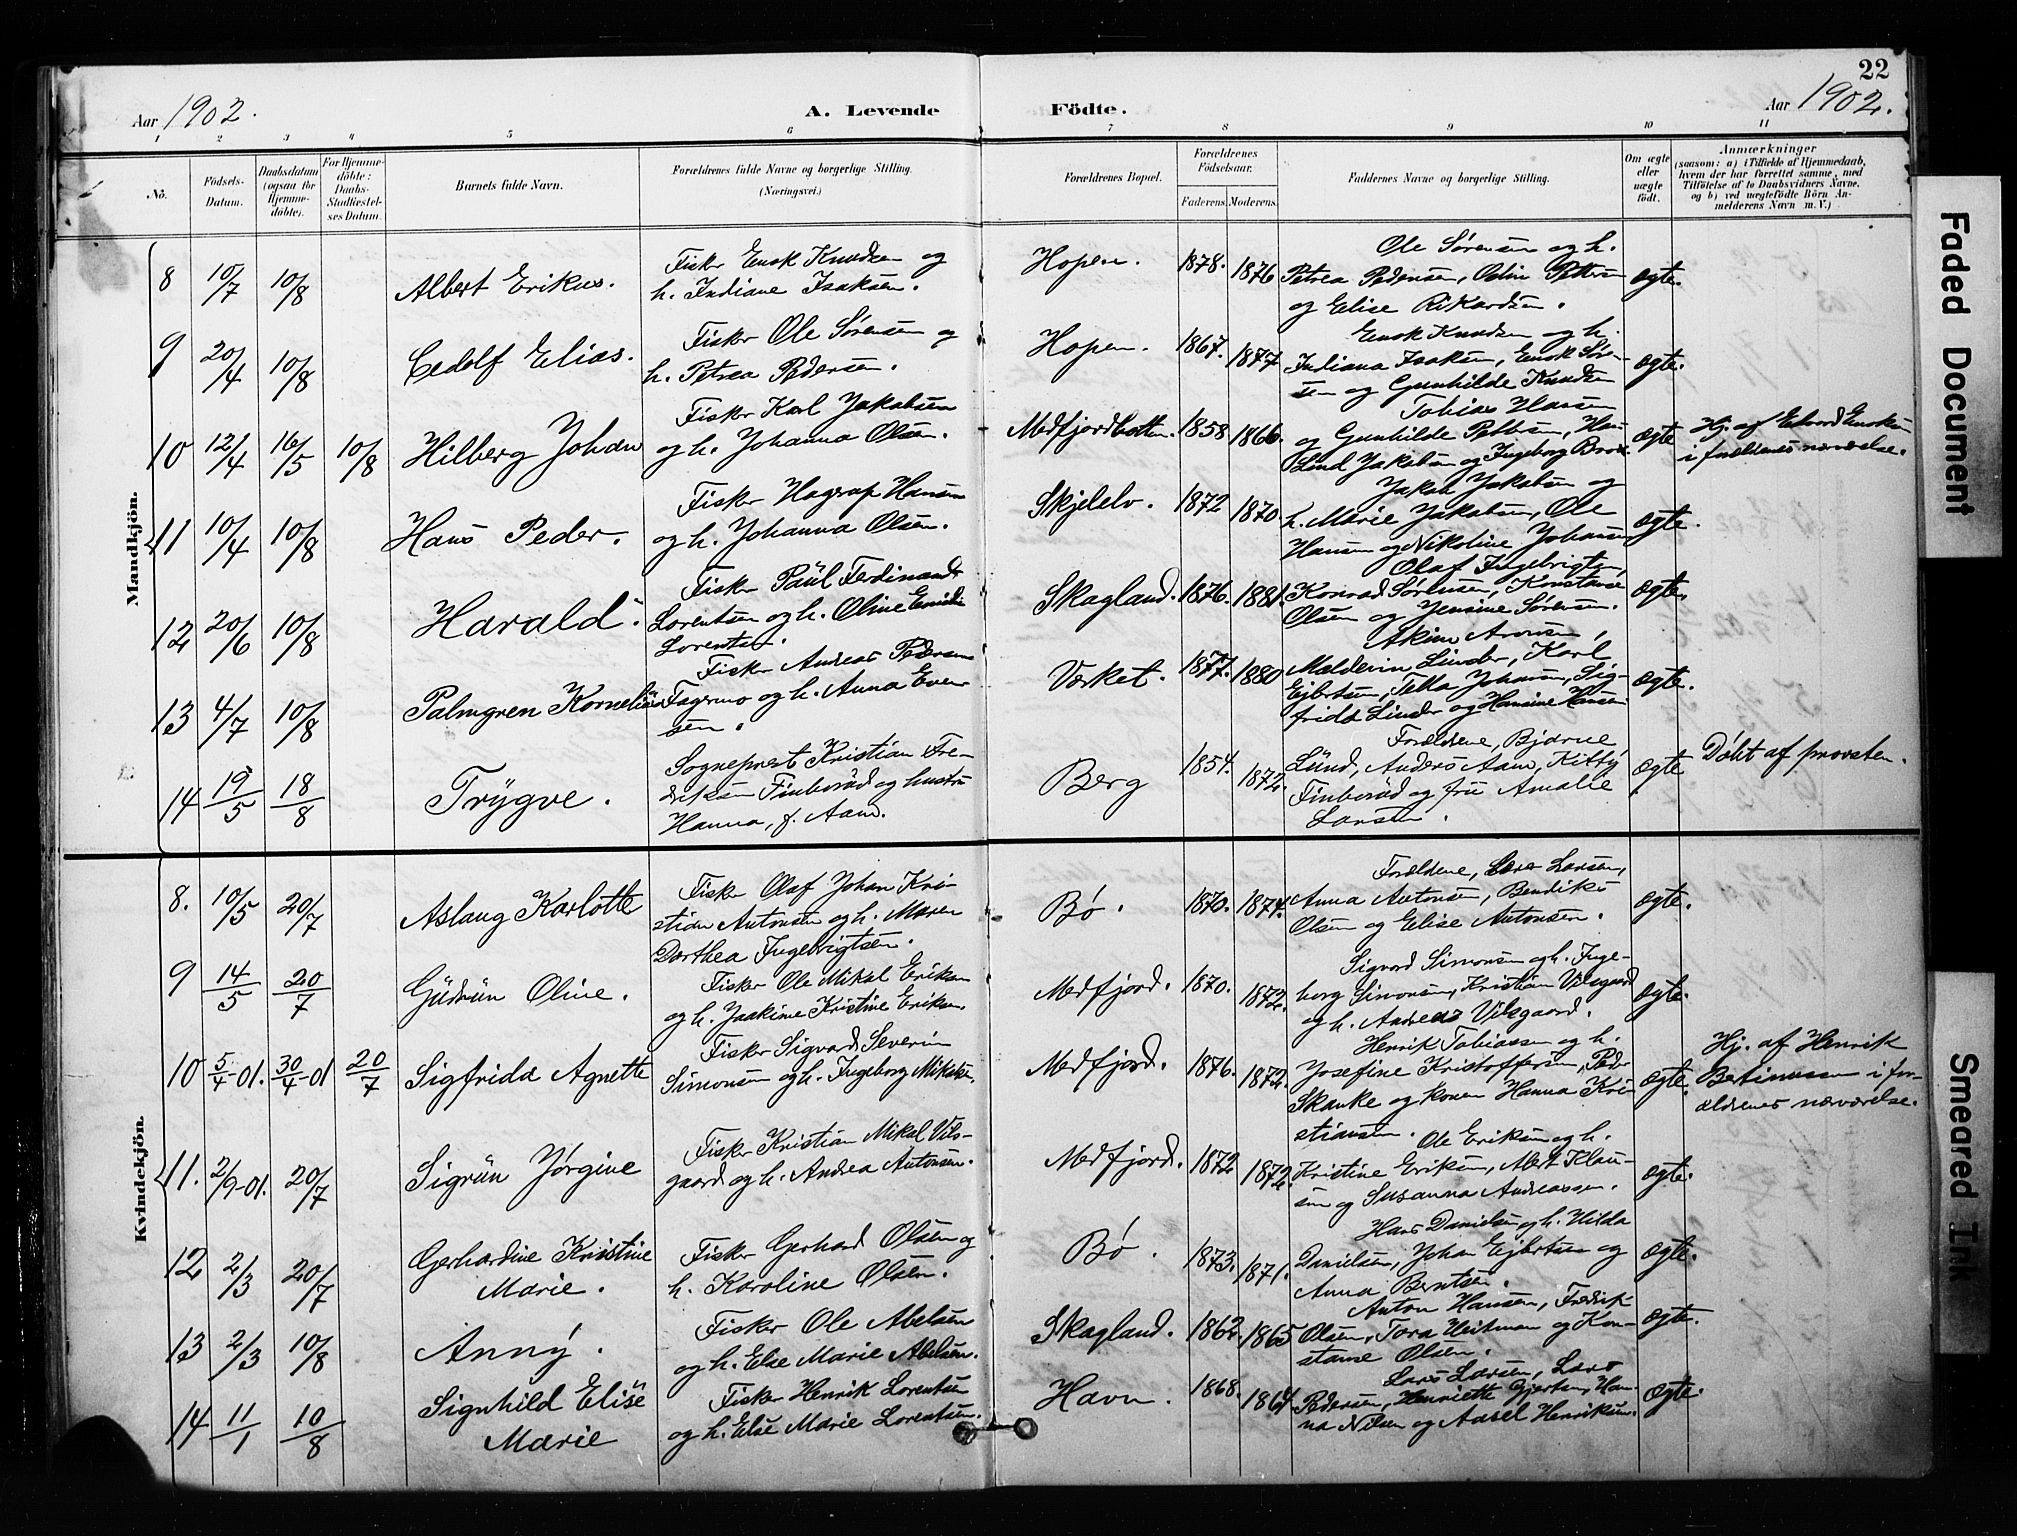 22
Aar 1902.
A. Levende
Födte.
Aar 1902.
1 2 3 4 5 6 7 8 9 10 11
No.
Födsels-
Datum.
Daabsdatum
(ogsaa for
Hjemme-
döbte).
For Hjemme-
döbte:
Daabs-
Stadfæstel-
ses Datum.
Barnets fulde Navn.
Forældrenes fulde Navne og borgerlige Stilling.
(Næringsvei.)
Forældrenes Bopæl.
Forældrenes
Födselsaar.
Faderens. Moderens.
Faddernes Navne og borgerlige Stilling.
Om ægte
eller
uægte
födt.
Anmærkninger
(saasom: a) i Tilfælde af Hjemmedaab,
hvem der har forrettet samme, med
Tilföielse af to Daabsvidners Navne,
og b) ved uægtefödte Börn An-
melderens Navn m. V.)
Mandkjön.
8 10/7 10/8 Albert Erikus.
Fisker Enok Knudsen og
h. Indiane Isaksen.
Hopen. 1878. 1876
Ole Sørensen og h.
Petrea Pedersen, Odin Pettersen
og Elise Rikardsen.
ægte.
9 20/4 10/8 Cedolf Elias.
Fisker Ole Sørensen og
h. Petrea Pedersen.
Hopen. 1867. 1877
Enok Knudsen og h.
Indiana Isaksen, Enok Søren-
sen og Gunhilde Knudsen
ægte.
10 12/4 16/5 10/8 Hilberg Johan
Fisker Karl Jakobsen
og h. Johanna Olsen.
Medfjordbotten. 1858 1866.
Tobias Hansen
og Gunhilde Pettersen, Han
Lind Jakobsen og Ingeborg
ægte
Hj. af Edvard Enoksen
i forældrenes nærværelse.
11 10/4 10/8 Hans Peder.
Fisker Hagerup Hansen
og h. Johanna Olsen.
Skjelelv. 1872 1870
Jakob Jakobsen og
h. Marie Jakobsen, Ole
Hansen og Nikoline Johansen
ægte.
12 20/6 10/8 Harald.
Fisker Paul Ferdinand
Lorentsen og h. Oline Emilie
Lorentsen.
Skagland. 1876. 1881.
Olaf Ingebrigtsen,
Konrad Sørensen, Konstanse
Olsen og Jensine Sørensen.
ægte.
13 4/7 10/8 Palmgren Kornelius
Fisker Andreas Pedersen
Fagermo og h. Anna Even-
sen.
Værket. 1877. 1880
Akim Aronsen,
Linder, Karl
Ejlertsen, Tella Johansen, Sig-
frida Linder og Hansine Hansen
ægte.
14 19/5 18/8 Trygve.
Sogneprest Kristian Fre-
driksen Finborud og hustru
Hanna, f. Aam.
Berg 1854. 1872.
Forældrene, Bjarne
Lund, Anders Aam, Kitty
Finborud og fru Amalie
Larsen.
ægte.
Døbt af provsten.
Kvindekjön.
8. 10/5 20/7 Aslaug Karlotte
Fisker Olaf Johan Kri-
stian Antonsen og h. Maren
Dorthea Ingebrigtsen.
Bø. 1870. 1874.
Forældrene, Lars Larsen,
Anna Antonsen, Bendiks
Olsen og Elise Antonsen.
ægte.
9 14/5 20/7 Gudrun Oline.
Fisker Ole Mikal Eriksen
og h. Joakime Kristine Eriksen.
Medfjord. 1870. 1872.
Sigvard Simonsen og h. Inge-
borg Simonsen, Kristian Vilsgaard
og h. Andrea Vilsgaard.
ægte.
10 5/4-01. 30/4-01 20/7 Sigfrida Agnette
Fisker Sigvard Severin
Simonsen og h. Ingeborg Mikalsen.
Medfjord. 1876. 1872.
Henrik Tobiassen og h.
Josefine Kristoffersen, Peder
Skanke og konen Hanna Kri-
stiansen.
ægte.
Hj. af Henrik
Bertinussen i for-
ældrenes nærværelse.
11. 2/9-01. 20/7 Sigrun Jørgine
Fisker Kristian Mikal Vils-
gaard og h. Andrea Antonsen.
Medfjord. 1872 1872.
Ole Eriksen og h.
Kristine Eriksen, Albert Klau-
sen og Susanna Andreassen.
ægte.
12 2/3 20/7 Gerhardine Kristine
Marie.
Fisker Gerhard Olsen og
h. Karoline Olsen.
Bø. 1873. 1871.
Hans Danielsen og h. Hilda
Danielsen, Johan Ejlertsen og
Anna Berntsen.
ægte.
13 2/3 10/8 Anny.
Fisker Ole Abelsen
og h. Else Marie Abelsen.
Skagland. 1862. 1865
Anton Hansen, Fredrik
Olsen, Tora Heitman og Kon-
stanse Olsen.
ægte.
14 11/1 10/8 Signhild Elise
Marie
Fisker Henrik Lorentsen
og h. Else Marie Lorentsen.
Havn. 1868. 1864.
Lars Larsen, Lars
Pedersen, Henriette Gjertsen, Han-
na Nilsen og Aasel Henriksen.
ægte.
Faded Document
Smeared Ink